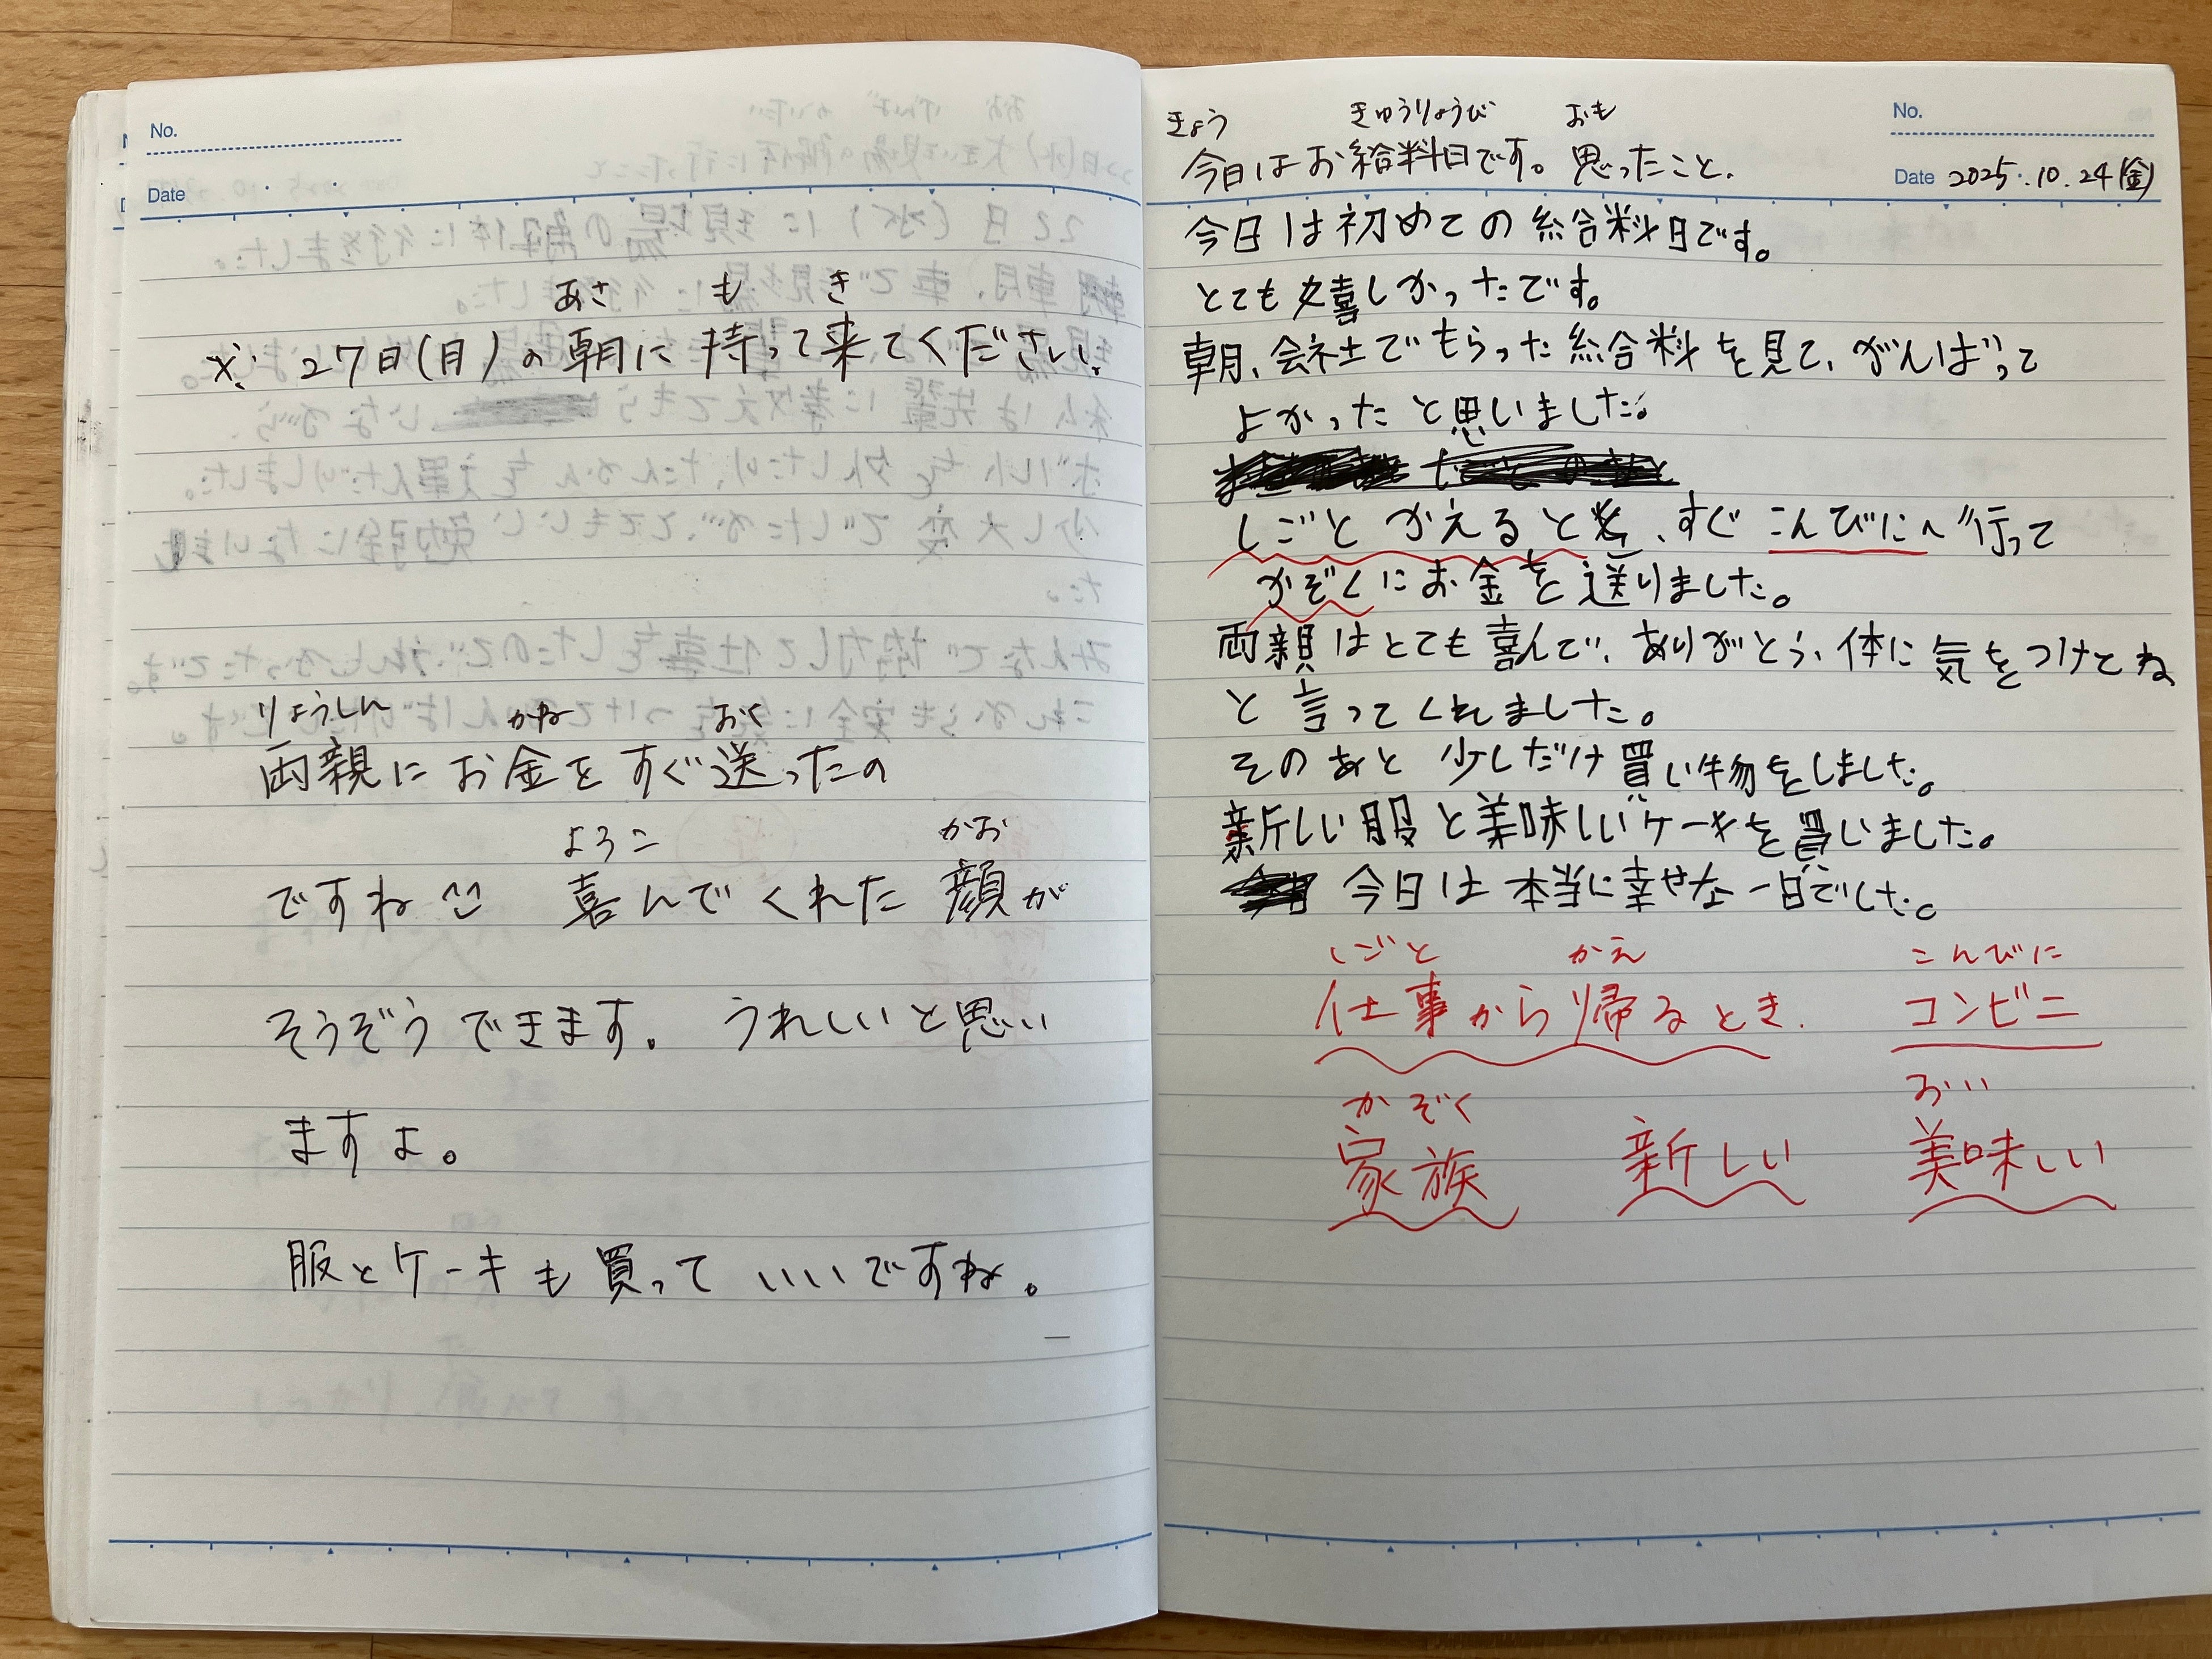 No.
Date
あさ も き
※ 27日(月)の朝に持って来てください。
りょうしん かね おく
両親にお金をすぐ送ったの
よろこ かお
ですね 喜んでくれた顔が
そうぞうできます。うれしいと思い
ますよ。
服とケーキも買っていいですね。
No.
Date 2025.10.24(金)
きょう きゅうりょうび おも
今日はお給料日です。思ったこと.
今日は初めての給料日です。
とても嬉しかったです。
朝、会社でもらった給料を見て、がんばって
よかったと思いました。
しごとかえると、すぐこんびにへ行って
かぞくにお金を送りました。
両親はとても喜んで、ありがとう、体に気をつけてね
と言ってくれました。
そのあと少しだけ買い物をしました。
新しい服と美味しいケーキを買いました。
今日は本当に幸せな一日でした。
しごと かえ こんびに
仕事から帰るとき. コンビニ
かぞく おい
家族 新しい 美味しい